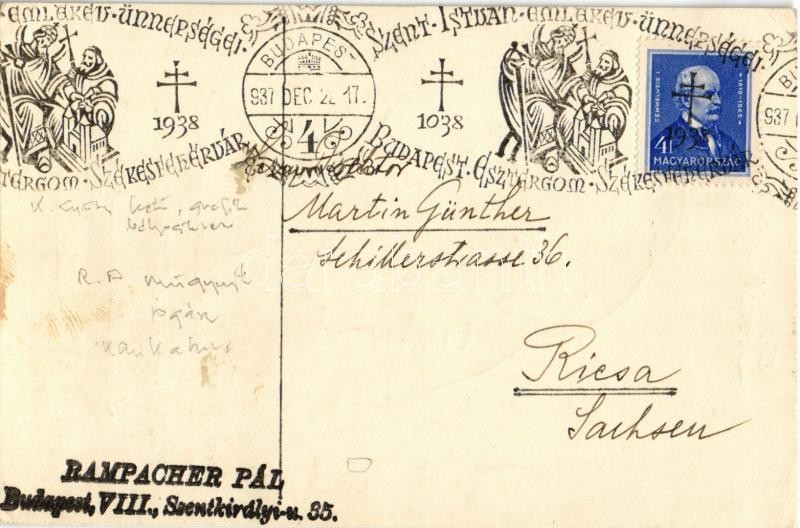 EMLÉKÉV-ÜNNEPSÉGEI
SZENT-ISTVÁN-EMLÉKÉV-ÜNNEPSÉGEI
BUDAPEST
937 DEC 22 17
4
1938
1038
SZTERGOM-SZÉKESFEHÉRVÁR
BUDAPEST-ESZTERGOM-SZÉKESFEHÉRVÁR
SEMMELWEIS I. 1818-1865
4f
1938
MAGYARORSZÁG
937
Martin Günther
Schillerstrasse 36.
Riesa
Sachsen
darabanth
RAMPACHER PÁL
Budapest, VIII., Szentkirályi-u. 35.